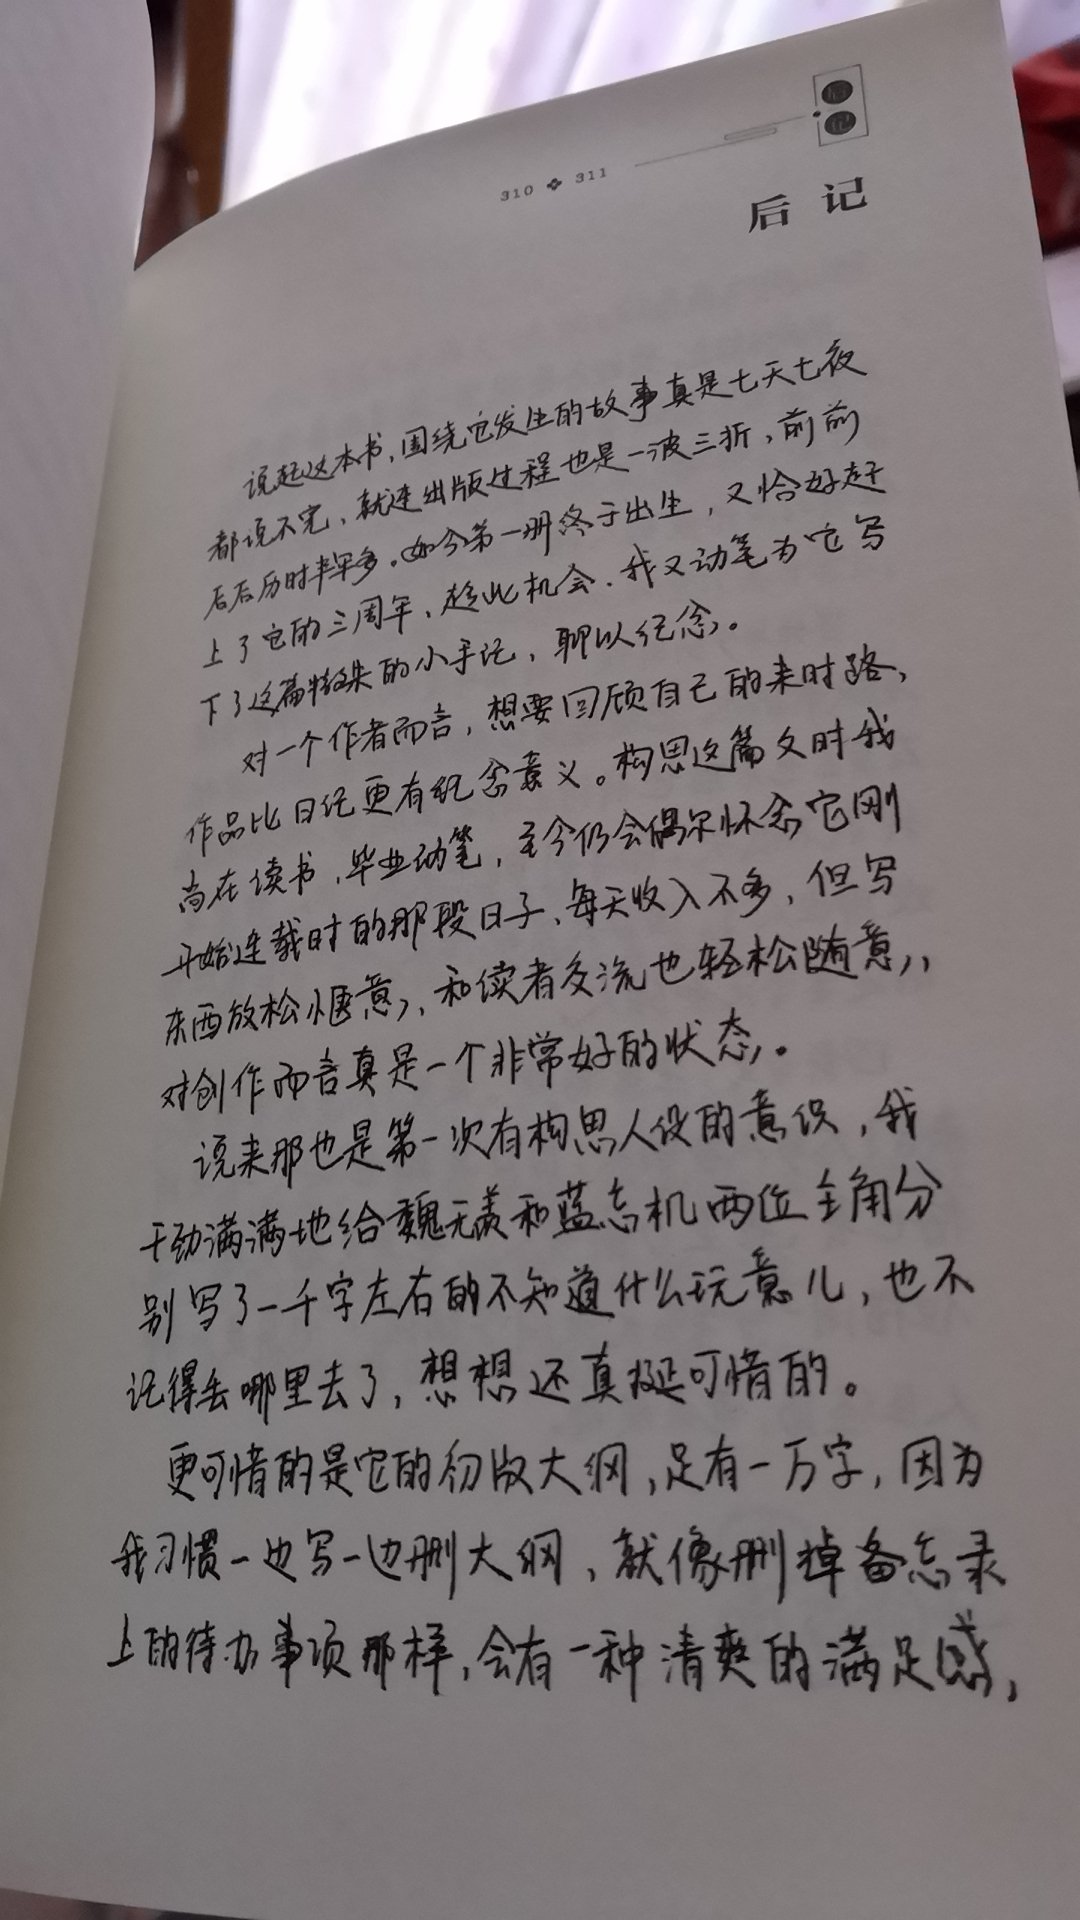 后记
310 ❖ 311
后记
说起这本书，围绕它发生的故事真是七天七夜
都说不完，就连出版过程也是一波三折，前前
后后历时半年多。如今第一册终于出生，又恰好赶
上了它的三周年，趁此机会，我又动笔为它写
下了这篇特殊的小手记，聊以纪念。
对一个作者而言，想要回顾自己的来时路，
作品比日记更有纪念意义。构思这篇文时我
尚在读书，毕业动笔，至今仍会偶尔怀念它刚
开始连载时的那段日子，每天收入不多，但写
东西放松惬意，和读者交流也轻松随意，
对创作而言真是一个非常好的状态。
说来那也是第一次有构思人设的意识，我
干劲满满地给魏无羡和蓝忘机两位主角分
别写了一千字左右的不知道什么玩意儿，也不
记得丢哪里去了，想想还真挺可惜的。
更可惜的是它的初版大纲，足有一万字，因为
我习惯一边写一边删大纲，就像删掉备忘录
上的待办事项那样，会有一种清爽的满足感，